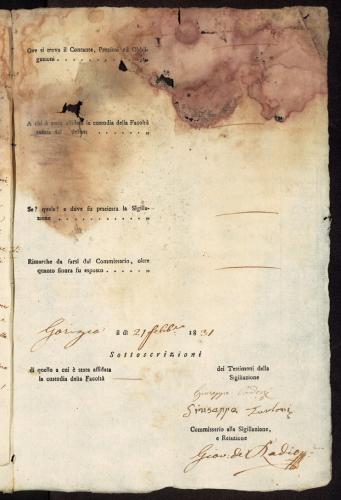 Ove si trova il Contante, Preziosi ed Obbli-
gazioni . . . . . . . . . . „
A chi è stata affidata la custodia della Facoltà
. . . . . . . „
Se? quale? e dove fu praticata la Sigilla-
zione . . . . . . . . . . . „
Rimarche da farsi dal Commissario, oltre
quanto finora fu esposto . . . . . . „
li di 21 1831
Sottoscrizioni
di quello a cui è stata affidata
la custodia della Facoltà
dei Testimoni della
Sigillazione
Giuseppe
Giuseppa
Commissario alla Sigillazione,
e Relazione
Giov. de Radio